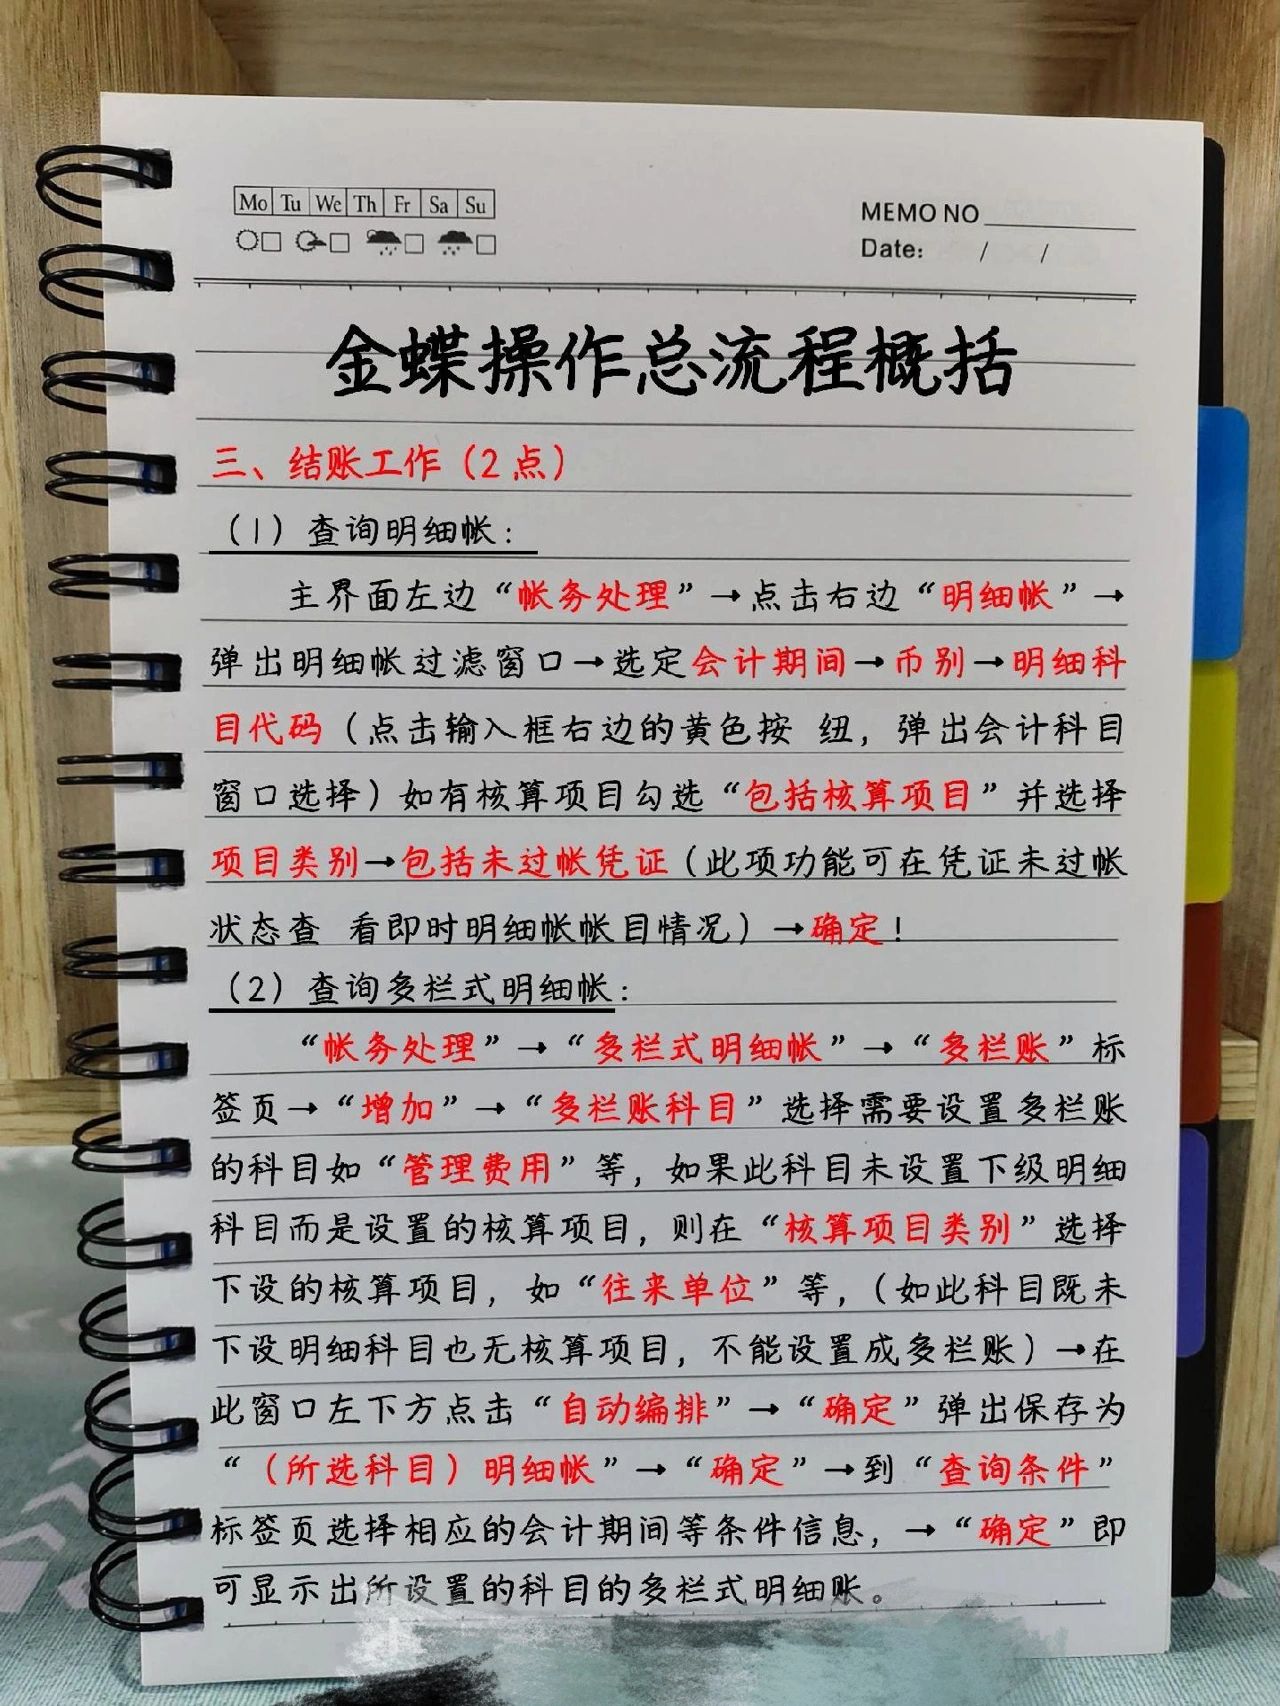 Mo Tu We Th Fr Sa Su
MEMO NO
Date: / /
金蝶操作总流程概括
三、结账工作（2点）
（1）查询明细帐：
主界面左边“帐务处理”→点击右边“明细帐”→
弹出明细帐过滤窗口→选定会计期间→币别→明细科
目代码（点击输入框右边的黄色按 纽，弹出会计科目
窗口选择）如有核算项目勾选“包括核算项目”并选择
项目类别→包括未过帐凭证（此项功能可在凭证未过帐
状态查 看即时明细帐帐目情况）→确定！
（2）查询多栏式明细帐：
“帐务处理”→“多栏式明细帐”→“多栏账”标
签页→“增加”→“多栏账科目”选择需要设置多栏账
的科目如“管理费用”等，如果此科目未设置下级明细
科目而是设置的核算项目，则在“核算项目类别”选择
下设的核算项目，如“往来单位”等，（如此科目既未
下设明细科目也无核算项目，不能设置成多栏账）→在
此窗口左下方点击“自动编排”→“确定”弹出保存为
“（所选科目）明细帐”→“确定”→到“查询条件”
标签页选择相应的会计期间等条件信息，→“确定”即
可显示出所设置的科目的多栏式明细账。